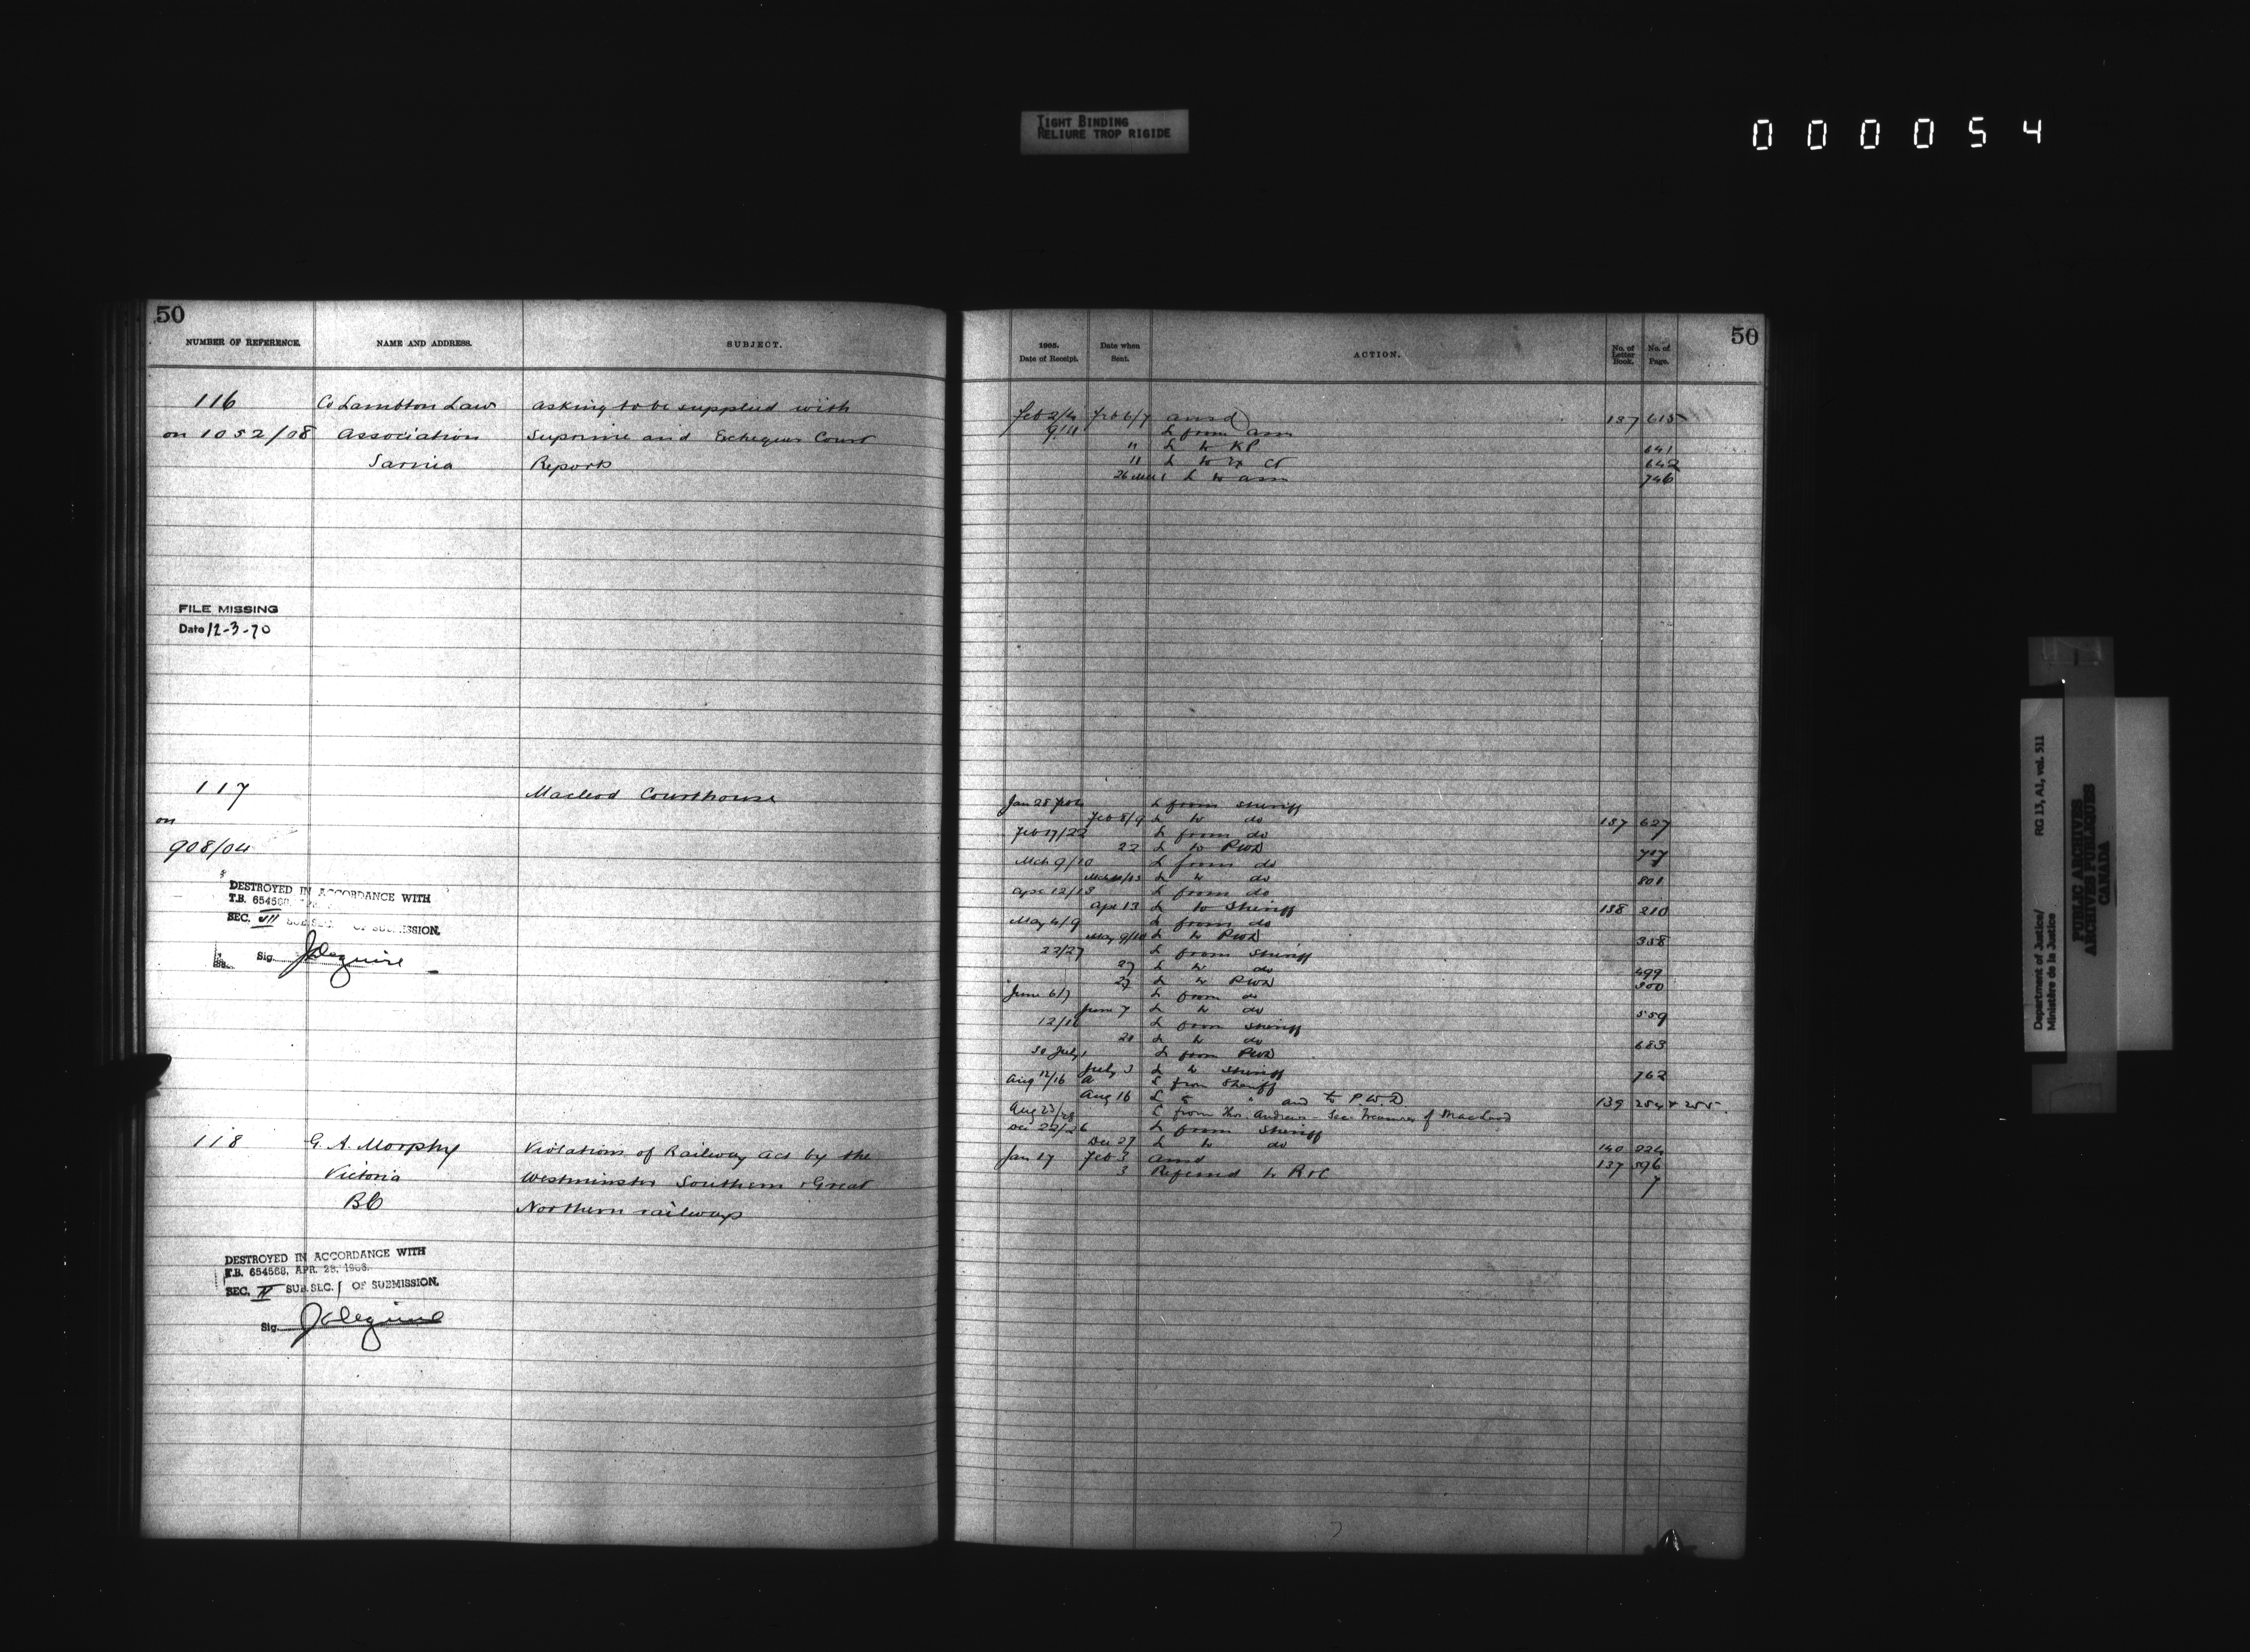 TIGHT BINDING
RELIURE TROP RIGIDE
000054
50
NUMBER OF REFERENCE. NAME AND ADDRESS. SUBJECT.
116 Co Lambton Law asking to be supplied with
on 1052/08 Association Supreme and Exchequer Court
Sarnia Reports
FILE MISSING
Date 12-3-70
117 Macleod Courthouse
on
908/04
DESTROYED IN ACCORDANCE WITH
T.B. 654568
SEC. VII SUB.SEC. OF SUBMISSION.
Sig. JLeguire
118 G. A. Morphy Violations of Railway Act by the
Victoria Westminster Southern & Great
BC Northern railways
DESTROYED IN ACCORDANCE WITH
T.B. 654568, APR. 28, 1966.
SEC. II SUB.SEC. 1 OF SUBMISSION.
Sig. JLeguire
50
1905. Date of Receipt. Date when Sent. ACTION. No. of Letter Book. No. of Page.
Feb 2/4 Feb 6/7 ansd 137 615
9/11 L from assn
" L to KP 641
11 L to Ex Ct 642
L to assn 746
Jan 28 L from Sheriff
Feb 8/9 L to do 137 627
Feb 17/22 L from do
22 L to PWD
Mch 9/10 L from do
L to do 801
Apr 12/13 L from do
Apr 13 L to Sheriff 138 210
May 4/9 L from do
May 9/10 L to PWD 358
23/27 L from Sheriff
27 L to do 499
27 L to PWD 500
June 6/7 L from do
June 7 L to do 559
12/16 L from Sheriff
20 L to do 683
30 July 1 L from PWD
July 3 L to Sheriff 762
Aug 12/16 L from Sheriff
Aug 16 L to " and to PWD 139 254 & 255
Aug 23/28 L from Thos. Andrews - Sec. Treasurer of MacLeod
Dec 22/26 L from Sheriff
Dec 27 L to do 140 224
Jan 17 Feb 3 ansd 137 596
3 Referred to R&C 7
Department of Justice/ RG 13, A1, vol. 511
Ministère de la Justice
PUBLIC ARCHIVES
ARCHIVES PUBLIQUES
CANADA